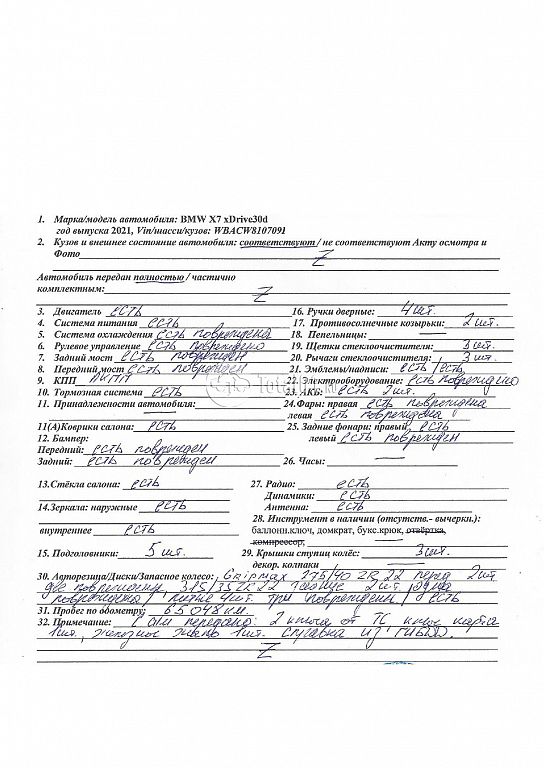 1. Марка/модель автомобиля: BMW X7 xDrive30d
год выпуска 2021, Vin/шасси/кузов: WBACW8107091
2. Кузов и внешнее состояние автомобиля: соответствуют / не соответствуют Акту осмотра и
Фото Z
Автомобиль передан полностью / частично
комплектным: Z
3. Двигатель есть
4. Система питания есть
5. Система охлаждения есть повреждена
6. Рулевое управление есть повреждено
7. Задний мост есть поврежден
8. Передний мост есть поврежден
9. КПП АКПП
10. Тормозная система есть
11. Принадлежности автомобиля:
11(А)Коврики салона: есть
12. Бампер:
Передний: есть поврежден
Задний: есть поврежден
13.Стёкла салона: есть
14.Зеркала: наружные есть
внутреннее есть
15. Подголовники: 5 шт.
16. Ручки дверные: 4 шт.
17. Противосолнечные козырьки: 2 шт.
18. Пепельницы: —
19. Щетки стеклоочистителя: 3 шт.
20. Рычаги стеклоочистителя: 3 шт.
21. Эмблемы/надписи: есть / есть
22. Электрооборудование: есть повреждено
23. АКБ: есть 2шт.
24.Фары: правая есть повреждена
левая есть повреждена
25. Задние фонари: правый есть
левый есть поврежден
26. Часы: —
27. Радио: есть
Динамики: есть
Антенна: есть
28. Инструмент в наличии (отсутств.- вычеркн.):
баллонн.ключ, домкрат, букс.крюк, отвёртка,
компрессор,
29. Крышки ступиц колёс: 3шт.
декор. колпаки
30. Авторезина/Диски/Запасное колесо: Gripmax 275/40 ZR 22 перед 2шт
две повреждены 315/35 ZR 22 задние 2 шт. одна
повреждена / литые 4шт. три повреждены / есть
31. Пробег по одометру: 65048 км.
32. Примечание: передано: 2 ключа от ТС ключ карта
1шт., 1шт. справка из ГИБДД.
Z